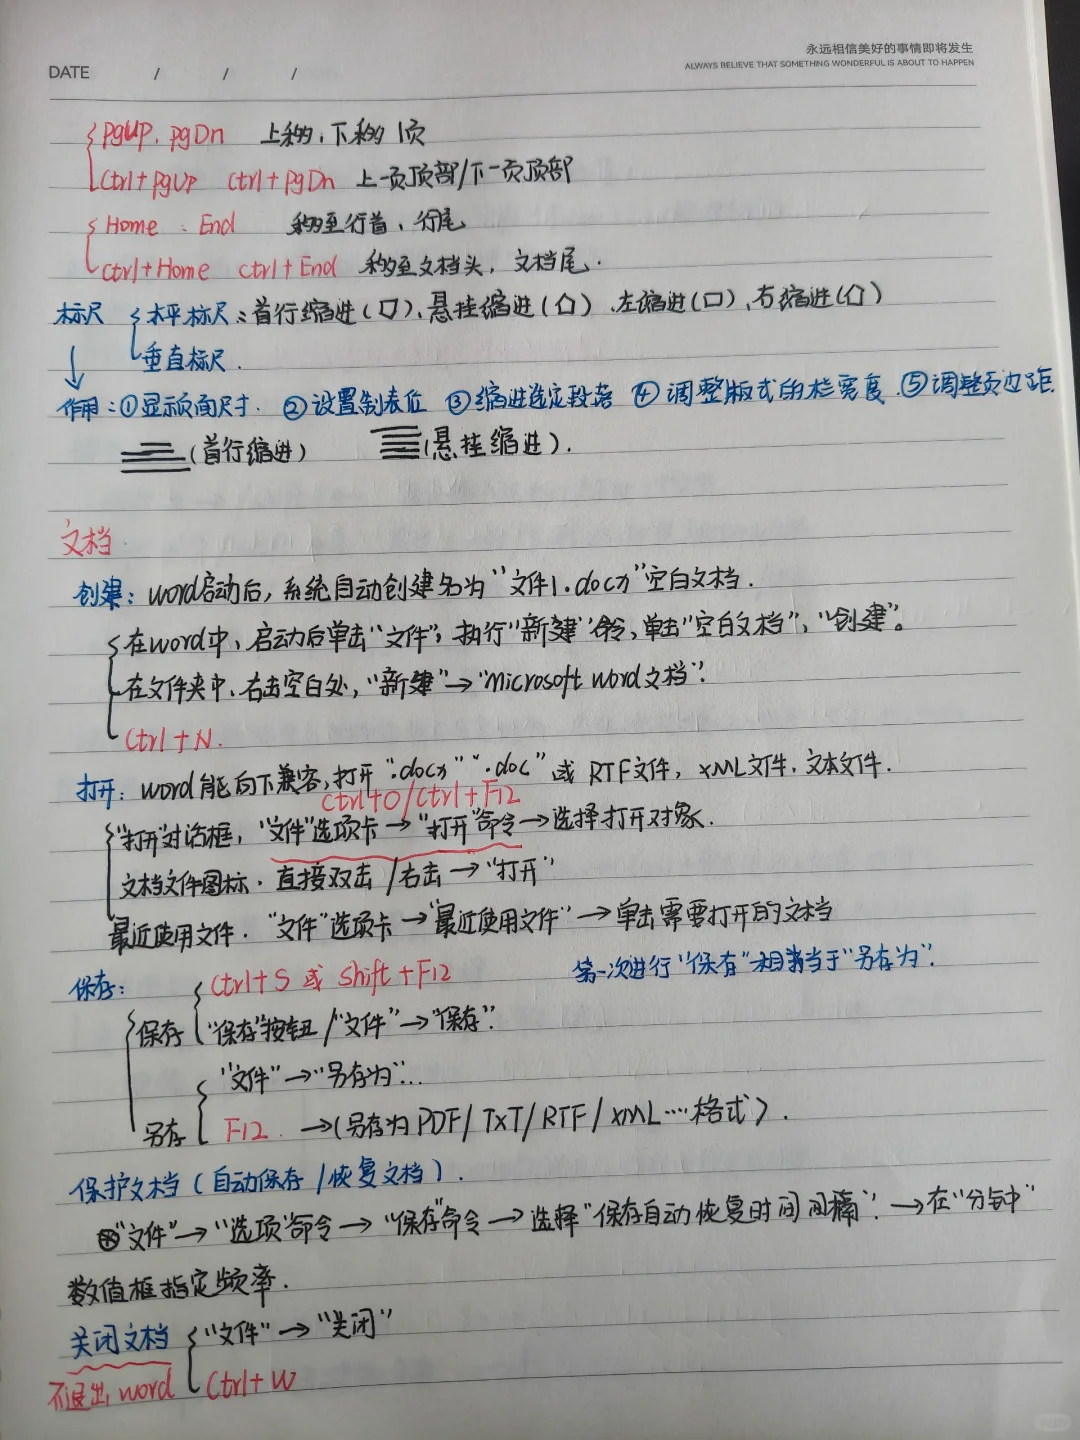 永远相信美好的事情即将发生
DATE / / /
ALWAYS BELIEVE THAT SOMETHING WONDERFUL IS ABOUT TO HAPPEN
PgUp. pgDn 上移,下移1页
Ctrl+pgup ctrl+pgDn 上一页顶部/下一页顶部
Home 、End 移至行首、行尾
Ctrl+Home ctrl+End 移至文档头, 文档尾.
标尺 水平标尺:首行缩进(▽).悬挂缩进(△).左缩进(□).右缩进(△)
垂直标尺.
作用:①显示页面尺寸. ②设置制表位 ③缩进选定段落 ④调整版式的栏宽度.⑤调整页边距.
(首行缩进) (悬挂缩进).
文档
创建: word启动后, 系统自动创建名为“文件1.docx”空白文档.
在word中、启动后单击“文件”, 执行“新建”命令, 单击“空白文档”, “创建”。
在文件夹中、右击空白处, “新建”→“Microsoft word文档”.
Ctrl+N.
打开: word能向下兼容, 打开“.docx”“.doc”或 RTF文件, XML文件, 文本文件.
Ctrl+O/Ctrl+F12
“打开”对话框, “文件”选项卡→“打开”命令→选择打开对象.
文档文件图标. 直接双击/右击→“打开”
最近使用文件. “文件”选项卡→“最近使用文件”→单击需要打开的文档
保存: Ctrl+S 或 Shift+F12 第一次进行“保存”相当于“另存为”.
保存 “保存”按钮/“文件”→“保存”.
“文件”→“另存为”...
另存 F12. →(另存为PDF/TXT/RTF/XML····格式).
保护文档(自动保存/恢复文档).
“文件”→“选项”命令→“保存”命令→选择“保存自动恢复时间间隔”.→在“分钟中”
数值框指定频率.
关闭文档 “文件”→“关闭”
不退出word Ctrl+W